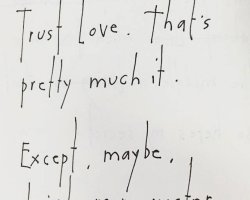 Trust Love. That's
pretty much it.
Except, maybe,